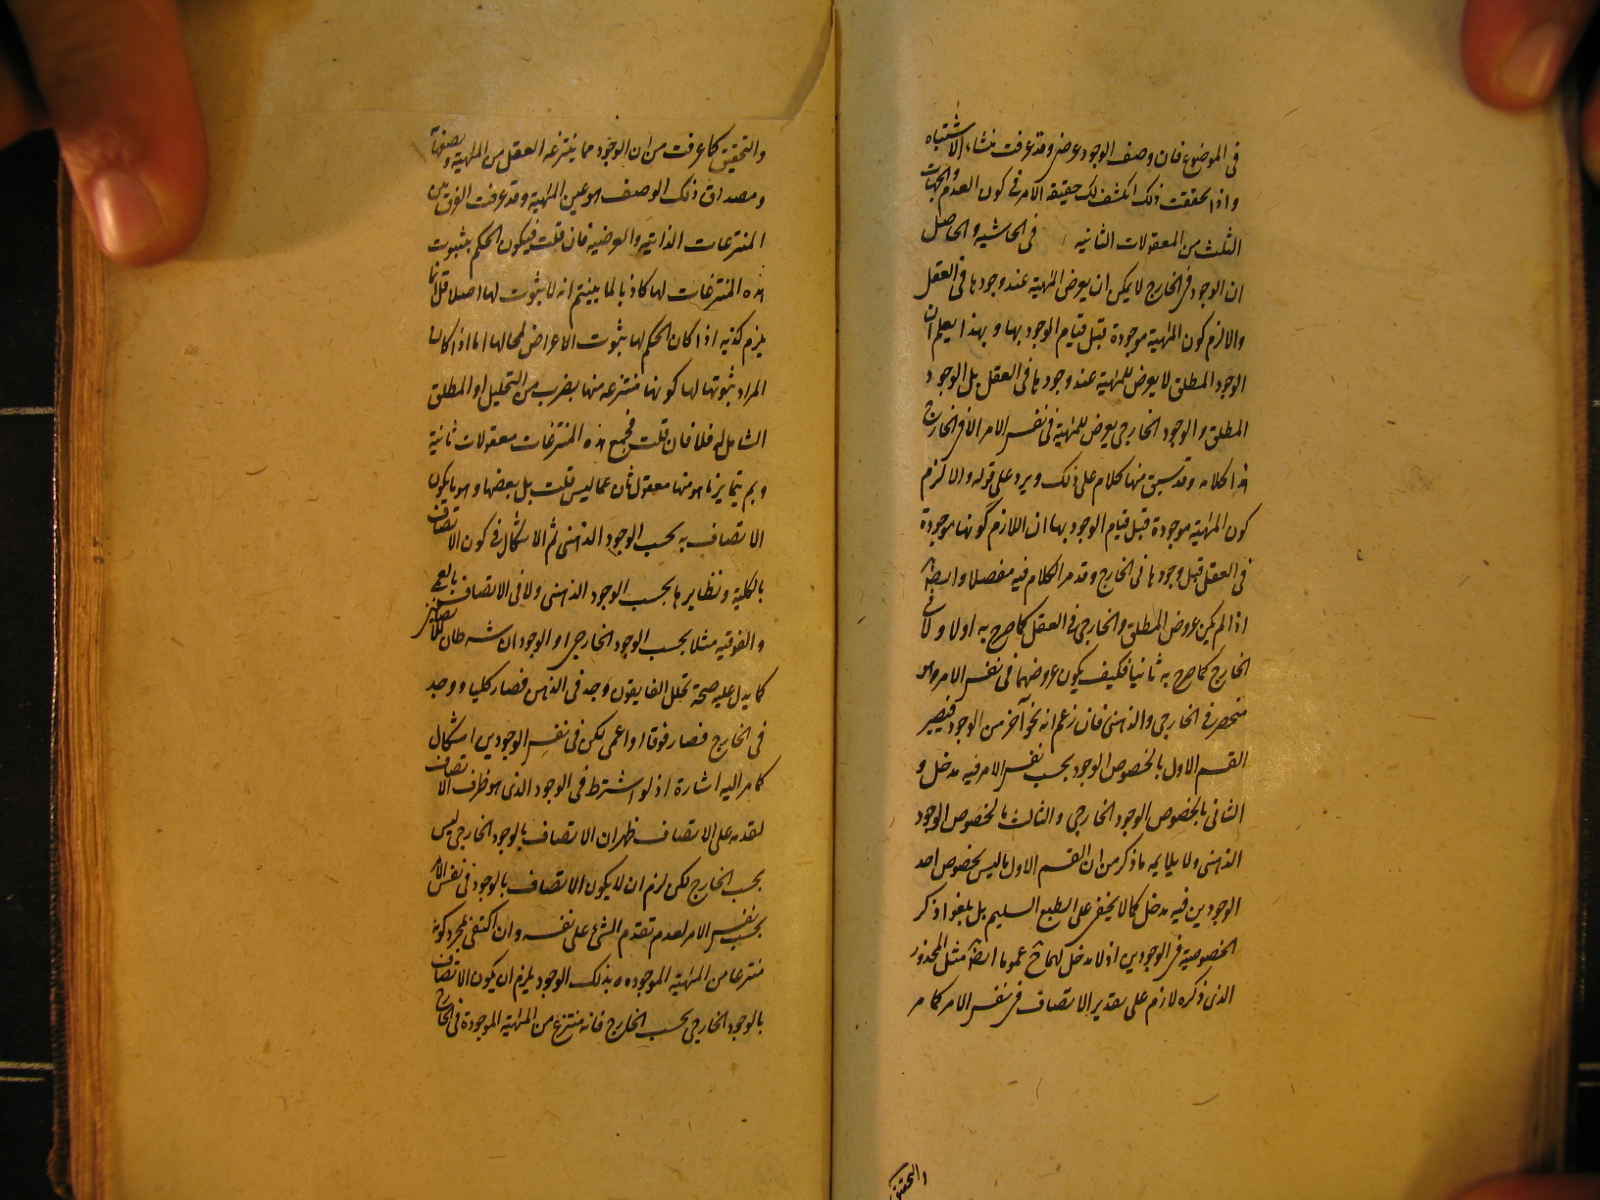 فى الموضوع فان وصف الوجود عرضى وقد عرفت منشاء الاشتباه
واذا تحققت ذلك انكشف لك حقيقة الامر فى كون العدم والجهات
الثلث من المعقولات الثانيه فى الحاشيه والحاصل
ان الوجود فى الخارج لا يمكن ان يعرض المهية عند وجودها فى العقل
والا لزم كون المهية موجودة قبل قيام الوجود بها وبهذا يعلم ان
الوجود المطلق لا يعرض للمهية عند وجودها فى العقل بل الوجود
المطلق والوجود الخارجى يعرض للمهية فى نفس الامر لا فى الخارج
هذا كلامه وقد سبق منها كلام على ذلك ويرد على قوله والا لزم
كون المهية موجودة قبل قيام الوجود بها ان اللازم كونها موجودة
فى العقل قبل وجودها فى الخارج وقد مر الكلام فيه مفصلا وايضا
اذا لم يكن عروض المطلق والخارجى فى العقل كما صرح به اولا ولا فى
الخارج كما صرح به ثانيا فكيف يكون عروضهما فى نفس الامر وهو
منحصر فى الخارجى والذهنى فان زعم انه نحو آخر من الوجود فيصير
القسم الاول بالخصوص الوجود بحسب نفس الامر فيه مدخل و
الثانى بالخصوص الوجود الخارجى والثالث بالخصوص الوجود
الذهنى ولا يلايمه ما ذكر من ان القسم الاول ما ليس بخصوص احد
الوجودين فيه مدخل كما لا يخفى على الطبع السليم بل يلغو اذ ذكر
الخصوصية فى الوجودين اذ لا مدخل لهما ح عموما ايضا مثل المحذور
الذى ذكره لازم على تقدير الاتصاف فى نفس الامر كما مر
والتحقيق
والتحقيق كما عرفت من ان الوجود مما ينتزعه العقل من المهية ويصفها
ومصداق ذلك الوصف هو عين المهية وقد عرفت الفرق بين
المنتزعات الذاتيه والعرضيه فان قلت فيكون الحكم بثبوت
هذه المنتزعات لها كاذبا لما بينتم انه لا ثبوت لها اصلا قلت انما
يلزم كذبه اذا كان الحكم لها بثبوت الاعراض لمحالها اما اذا كان
المراد بثبوتها لها كونها منتزعه منها بضرب من التحليل او المطلق
الشامل له فلا فان قلت فجميع هذه المنتزعات معقولات ثانية
وبم يتمايز ما هو منها معقول ثان عما ليس قلت بل بعضها وهو ما يكون
الاتصاف به بحسب الوجود الذهنى ثم الاشكال فى كون الاتصاف
بالكلية ونظايرها بحسب الوجود الذهنى ولا فى الاتصاف بالعمى
والفوقيه مثلا بحسب الوجود الخارجى او الوجود ان شرطان للاتصافين
كما يدل عليه صحة تخلل الفا يقول وجد فى الذهن فصار كليا ووجد
فى الخارج فصار فوقا او اعمى لكن فى نفس الوجودين اشكال
كما مر اليه اشارة اذ لو اشترط فى الوجود الذى هو ظرف الاتصاف
تقدمه على الاتصاف ظهر ان الاتصاف بالوجود الخارجى ليس
بحسب الخارج لكن لزم ان لا يكون الاتصاف بالوجود فى نفس الامر
بحسب نفس الامر لعدم تقدم الشئ على نفسه وان اكتفى بمجرد كونه
منتزعا من المهية الموجوده بذلك الوجود يلزم ان يكون الاتصاف
بالوجود الخارجى بحسب الخارج فانه منتزع من المهية الموجودة فى الخارج